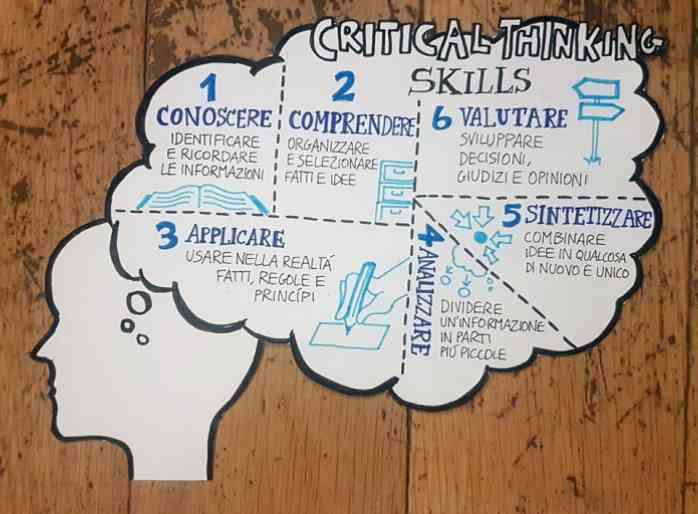 CRITICAL THINKING
SKILLS
1
CONOSCERE
IDENTIFICARE
E RICORDARE
LE INFORMAZIONI
2
COMPRENDERE
ORGANIZZARE
E SELEZIONARE
FATTI E IDEE
3 APPLICARE
USARE NELLA REALTÁ
FATTI, REGOLE E
PRINCÍPI
4 ANALIZZARE
DIVIDERE
UN'INFORMAZIONE
IN PARTI
PIÚ PICCOLE
5 SINTETIZZARE
COMBINARE
IDEE IN QUALCOSA
DI NUOVO E UNICO
6 VALUTARE
SVILUPPARE
DECISIONI,
GIUDIZI E OPINIONI